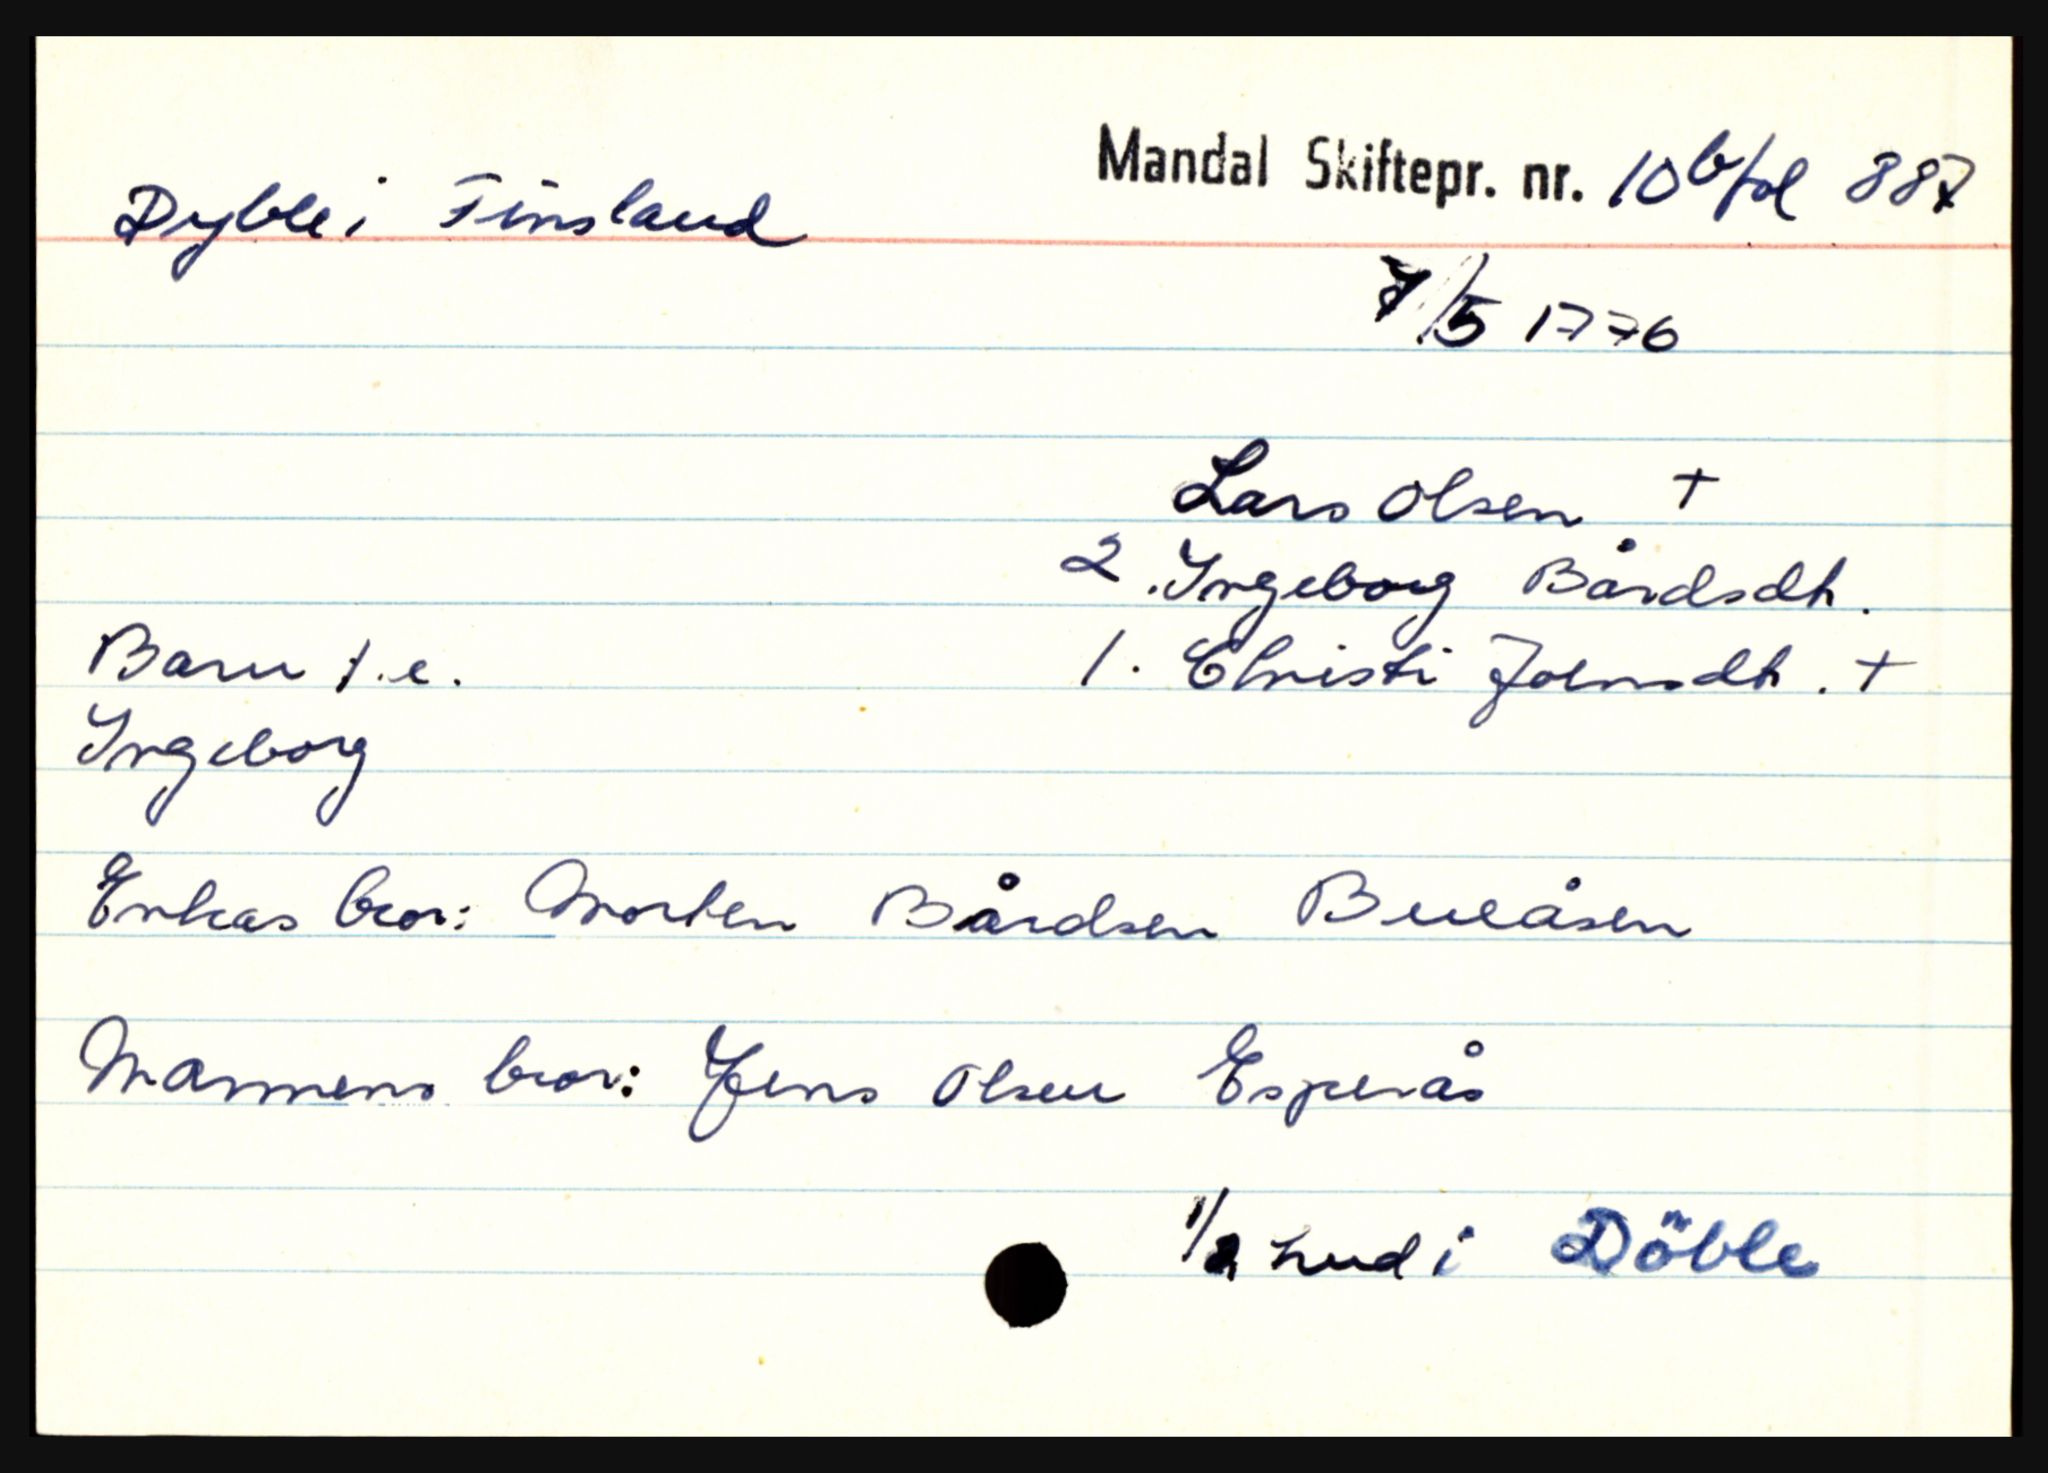 Mandal Skiftepr. nr. 10b fol 887
Dyble i Finsland
7/5 1776
Lars Olsen +
2. Ingeborg Bårdsdt.
Barn 1. e. 1. Christi Johnsdt. +
Ingeborg
Enkas bror: Morten Bårdsen Bueåsen
Mannens bror: Jens Olsen Esperås
1/2 hud i Döble